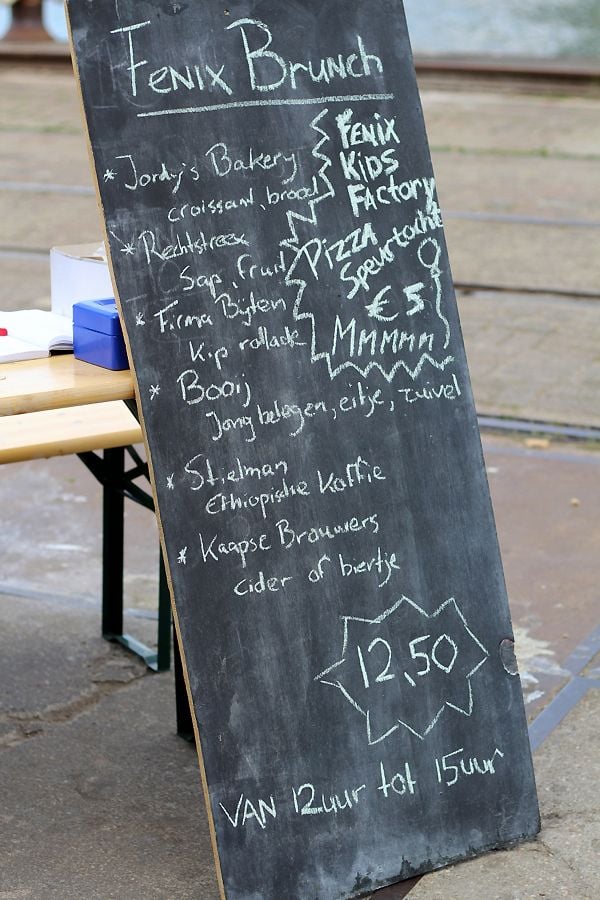 FENIX BRUNCH
* Jordy's Bakery
croissant, brood
* Rechtstreex
Sap, fruit
* Firma Bijten
Kip rollade
* Booij
Jong belegen, eitje, zuivel
* Stielman
Ethiopische koffie
* Kaapse Brouwers
cider of biertje
FENIX
KIDS
FACTORY
PIZZA
Speurtocht
€5
MMMMM
12,50
VAN 12uur tot 15uur